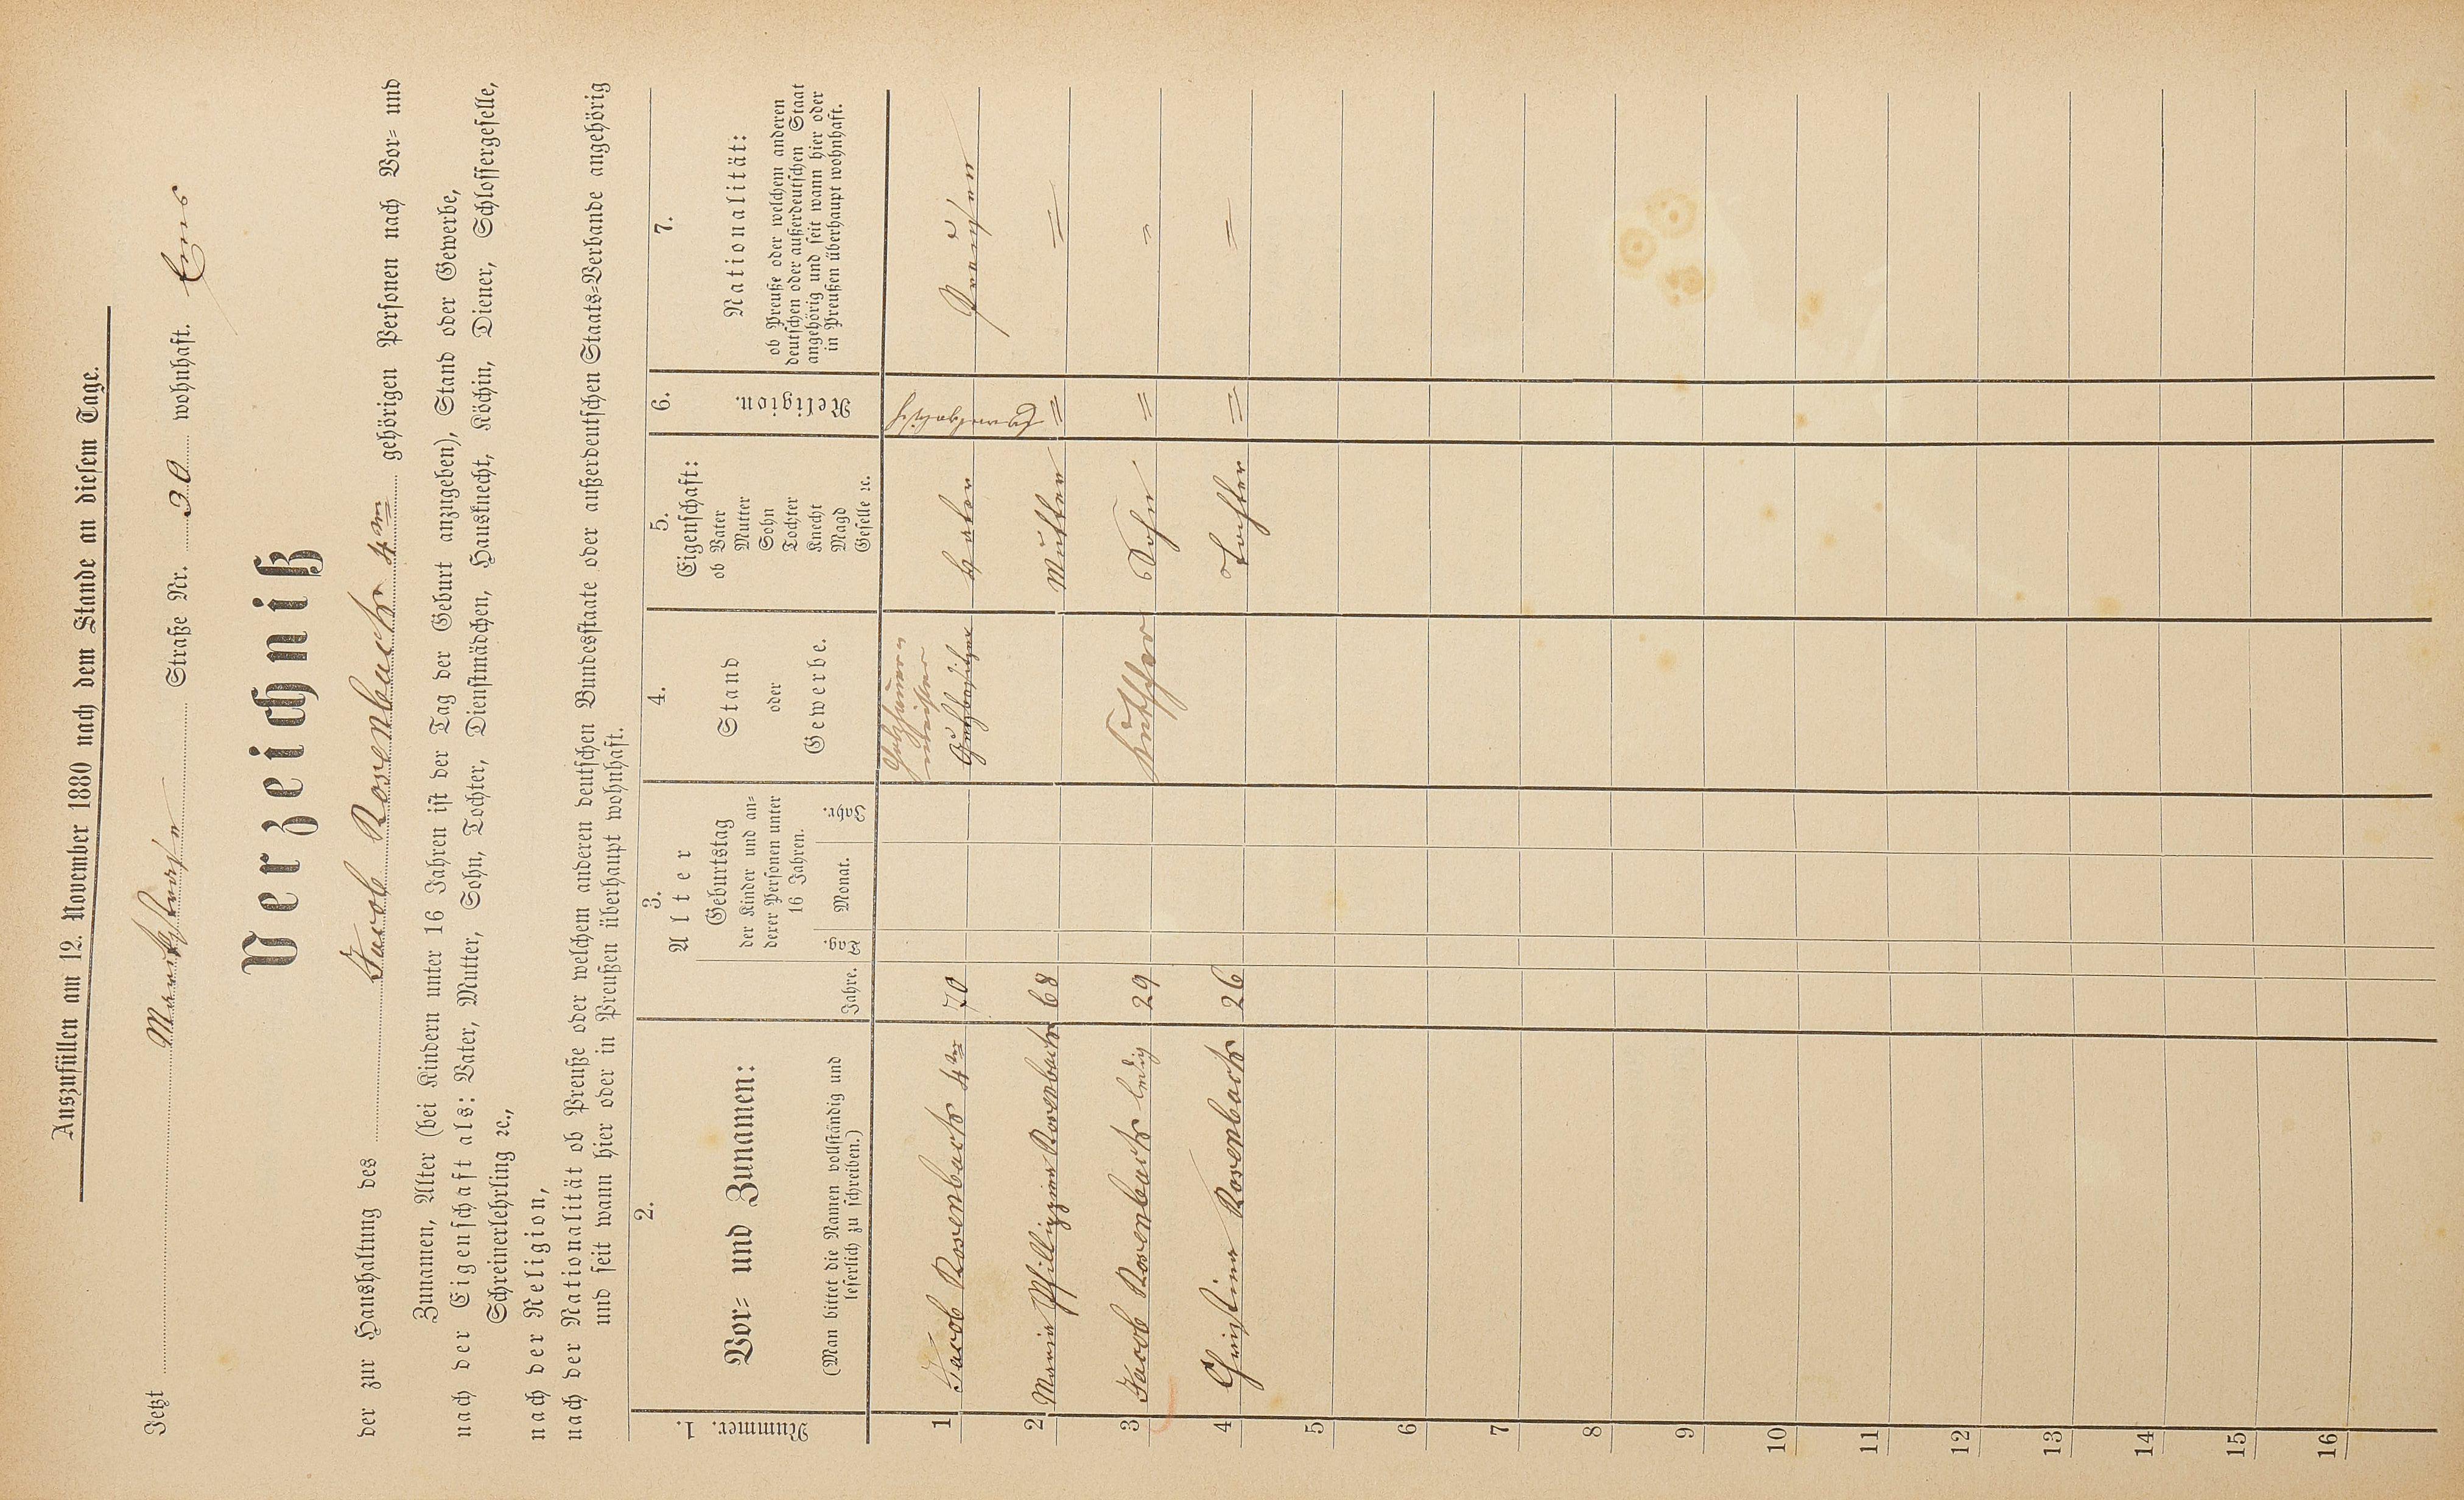 Auszufüllen am 12. November 1880 nach dem Stande an diesem Tage.
Jetzt Marktstraße Straße Nr. 30 wohnhaft. Ems
Verzeichniß
der zur Haushaltung des Jacob Rosenbach 4ter gehörigen Personen nach Vor- und
Zunamen, Alter (bei Kindern unter 16 Jahren ist der Tag der Geburt anzugeben), Stand oder Gewerbe,
nach der Eigenschaft als: Vater, Mutter, Sohn, Tochter, Dienstmädchen, Hausknecht, Köchin, Diener, Schlossergeselle,
Schreinerlehrling ꝛc.,
nach der Religion,
nach der Nationalität ob Preuße oder welchem anderen deutschen Bundesstaate oder außerdeutschen Staats-Verbande angehörig
und seit wann hier oder in Preußen überhaupt wohnhaft.
1. Nummer.
2. Vor- und Zunamen:
(Man bittet die Namen vollständig und
leserlich zu schreiben.)
3. Alter
Jahre.
Geburtstag
der Kinder und an-
derer Personen unter
16 Jahren.
Tag. Monat. Jahr.
4. Stand
oder
Gewerbe.
5. Eigenschaft:
ob Vater
Mutter
Sohn
Tochter
Knecht
Magd
Geselle ꝛc.
6. Religion.
7. Nationalität:
ob Preuße oder welchem anderen
deutschen oder außerdeutschen Staat
angehörig und seit wann hier oder
in Preußen überhaupt wohnhaft.
1 Jacob Rosenbach 4ter 70 Holzhauer-
meister
Gutsbesitzer Vater Evangelisch Preußen
2 Maria Phillippine Rosenbach 68 Mutter = =
3 Jacob Rosenbach ledig 29 Kutscher Sohn = =
4 Christine Rosenbach 26 Tochter = =
5
6
7
8
9
10
11
12
13
14
15
16